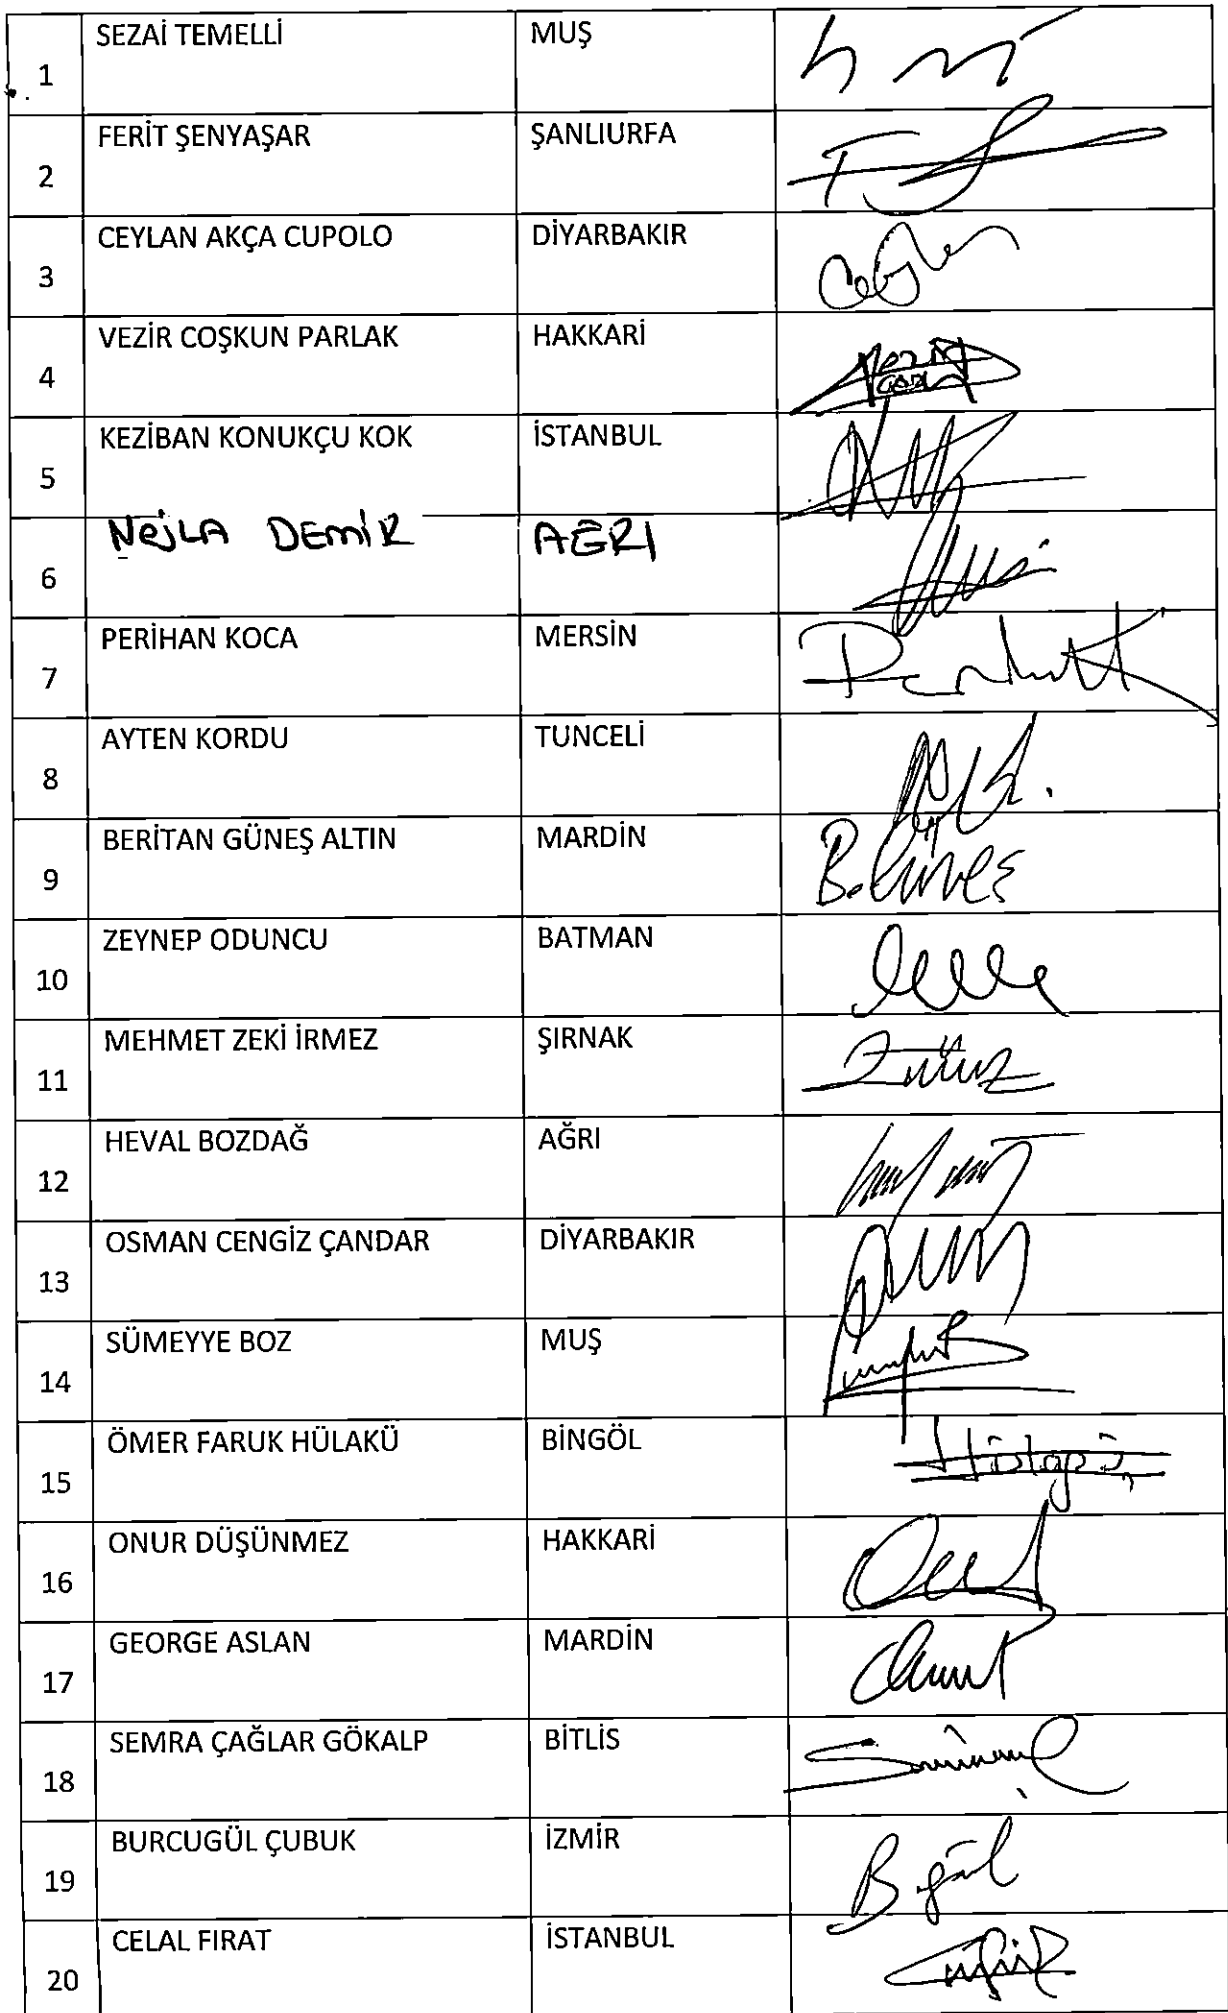 1 SEZAİ TEMELLİ MUŞ
2 FERİT ŞENYAŞAR ŞANLIURFA
3 CEYLAN AKÇA CUPOLO DİYARBAKIR
4 VEZİR COŞKUN PARLAK HAKKARİ
5 KEZİBAN KONUKÇU KOK İSTANBUL
6 NejLA DEMİR AĞRI
7 PERİHAN KOCA MERSİN
8 AYTEN KORDU TUNCELİ
9 BERİTAN GÜNEŞ ALTIN MARDİN B.Güneş
10 ZEYNEP ODUNCU BATMAN
11 MEHMET ZEKİ İRMEZ ŞIRNAK
12 HEVAL BOZDAĞ AĞRI
13 OSMAN CENGİZ ÇANDAR DİYARBAKIR
14 SÜMEYYE BOZ MUŞ
15 ÖMER FARUK HÜLAKÜ BİNGÖL
16 ONUR DÜŞÜNMEZ HAKKARİ
17 GEORGE ASLAN MARDİN
18 SEMRA ÇAĞLAR GÖKALP BİTLİS
19 BURCUGÜL ÇUBUK İZMİR B.gül
20 CELAL FIRAT İSTANBUL